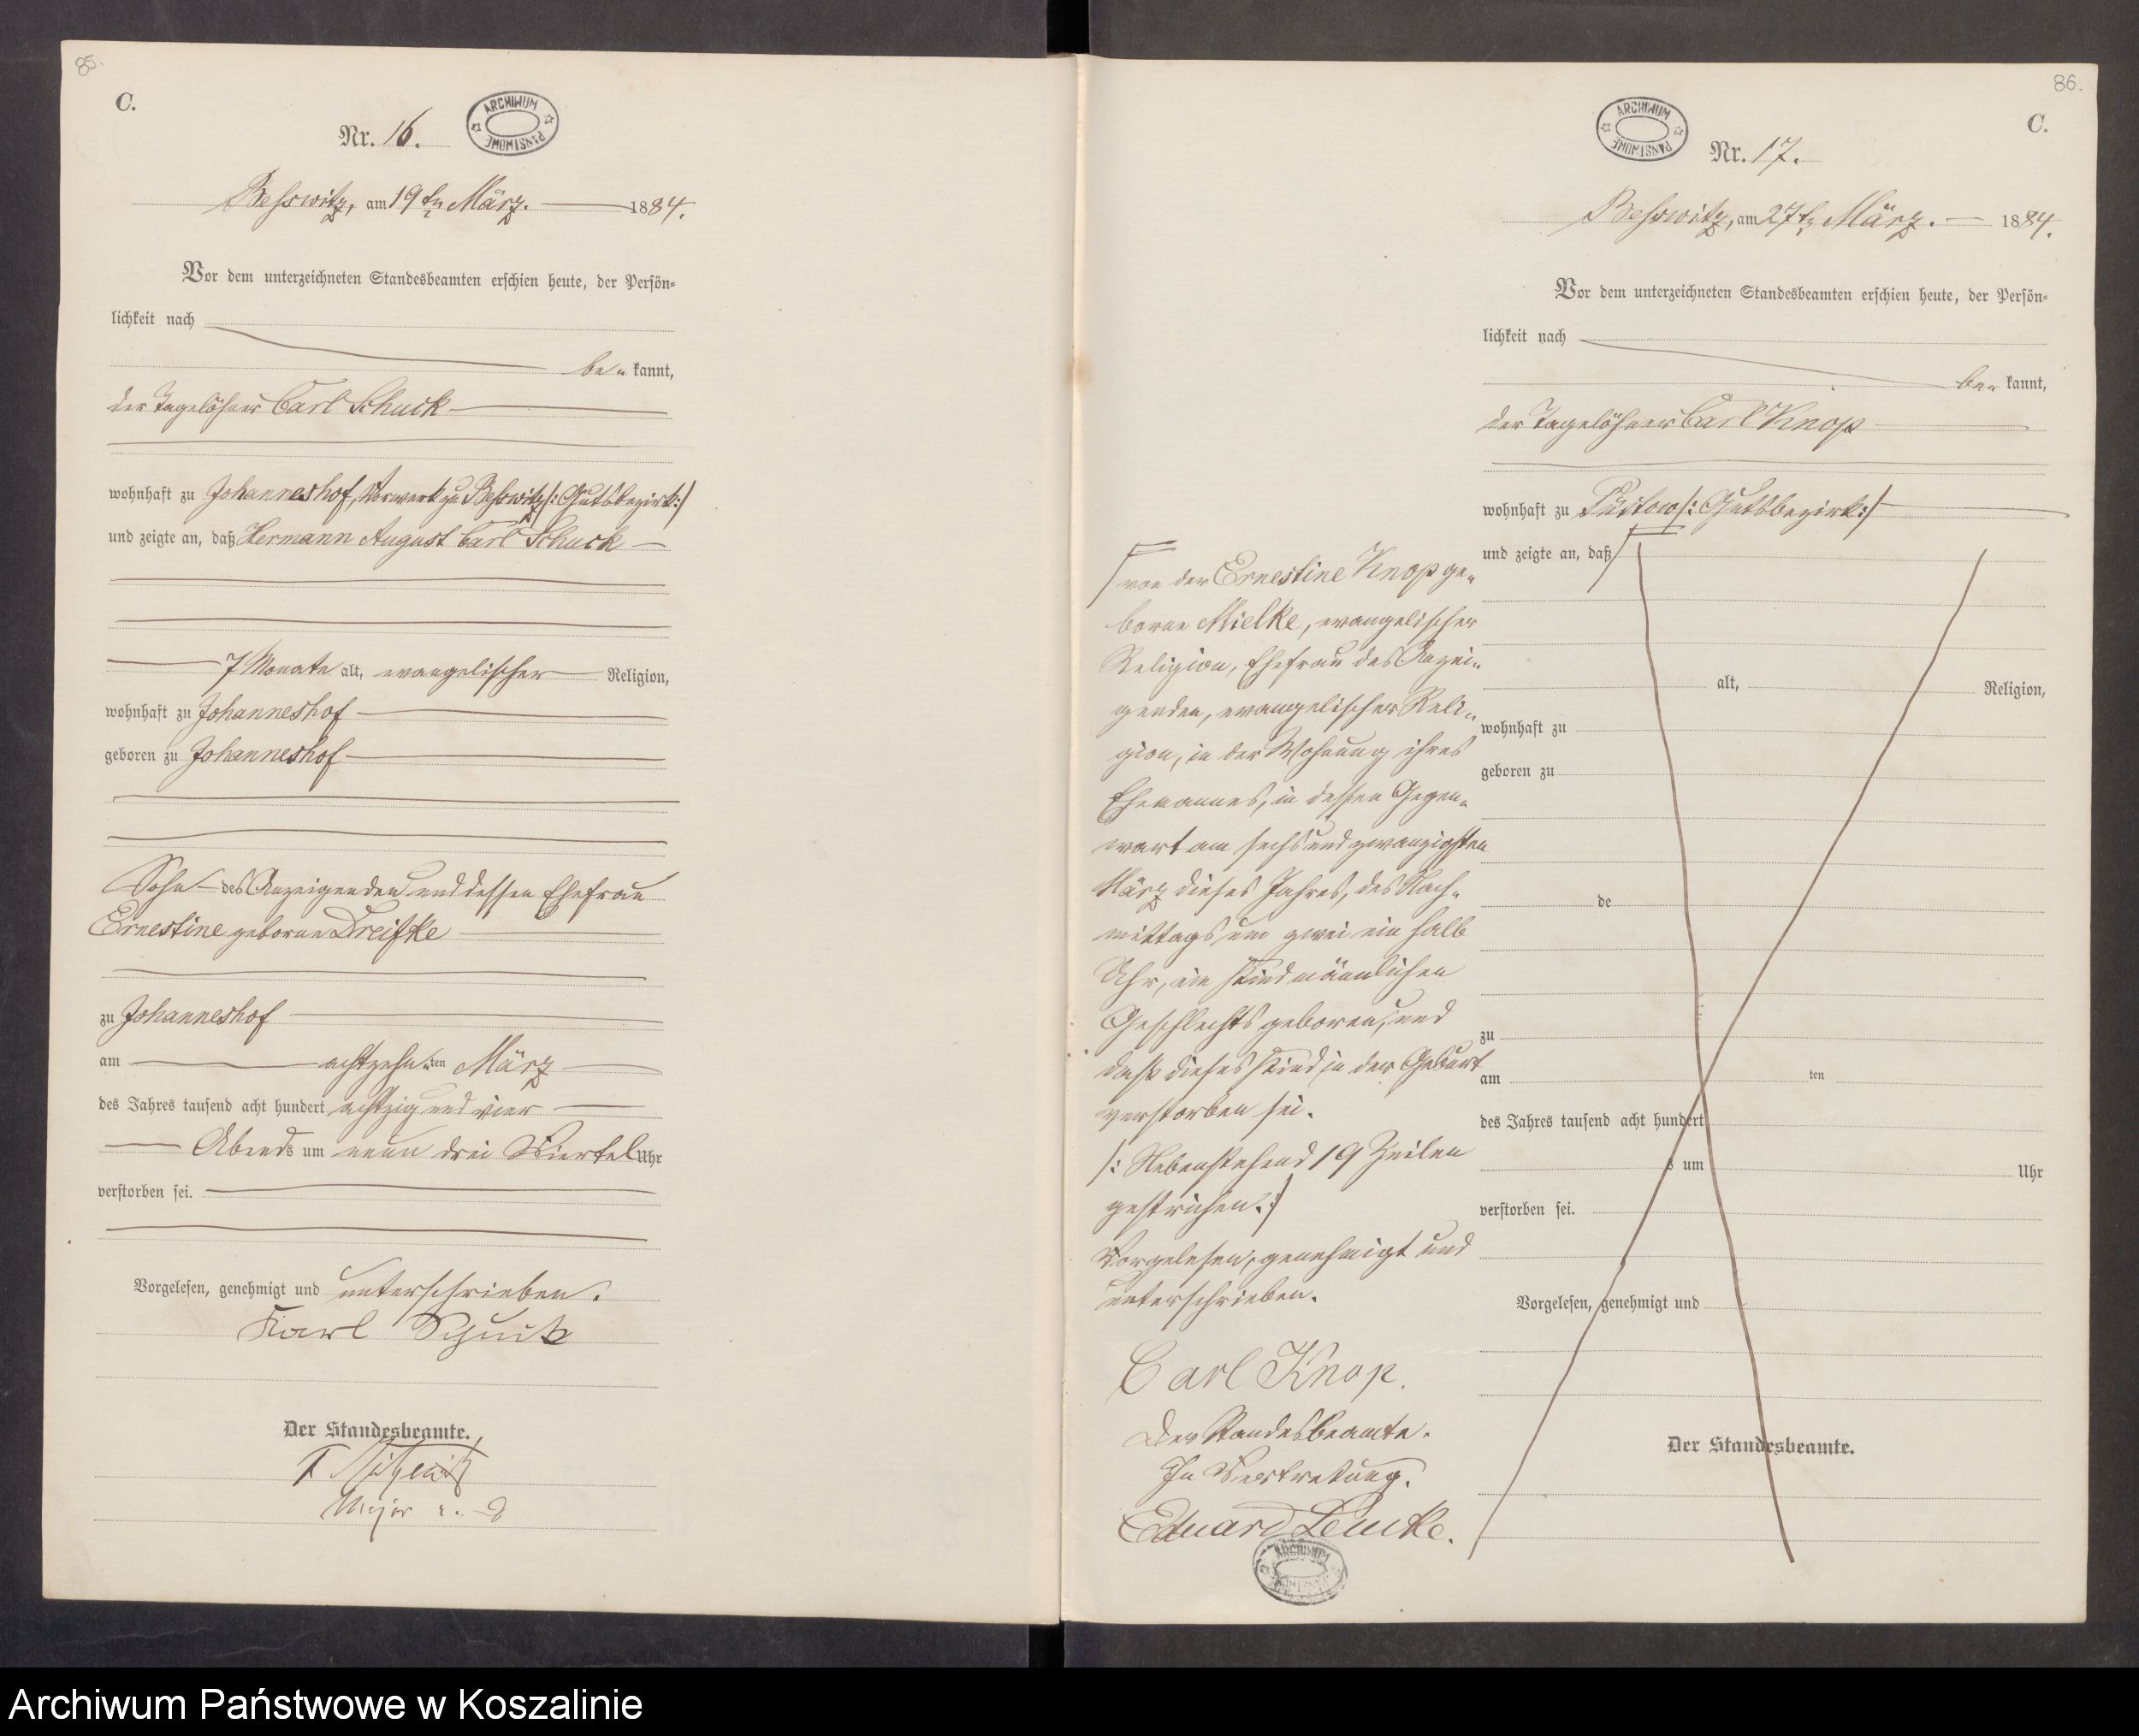 85.
C.
Nr. 16.
ARCHIWUM PAŃSTWOWE
Beßwitz, am 19ten März. 1884.
Vor dem unterzeichneten Standesbeamten erschien heute, der Persön-
lichkeit nach
be- kannt,
der Tagelöhner Carl Schuck
wohnhaft zu Johanneshof, Vorwerk zu Beßwitz /: Gutsbezirk :/
und zeigte an, daß Hermann August Carl Schuck
7 Monate alt, evangelischer Religion,
wohnhaft zu Johanneshof
geboren zu Johanneshof
Sohn des Anzeigenden und dessen Ehefrau
Ernestine geborne Dreifke
zu Johanneshof
am achtzehn-ten März
des Jahres tausend acht hundert achtzig und vier
Abends um neun drei Viertel Uhr
verstorben sei.
Vorgelesen, genehmigt und unterschrieben.
Karl Schuck
Der Standesbeamte.
Major a. D
86.
C.
ARCHIWUM PAŃSTWOWE
Nr. 17.
Beßwitz, am 27ten März. 1884.
Vor dem unterzeichneten Standesbeamten erschien heute, der Persön-
lichkeit nach
be- kannt,
der Tagelöhner Carl Knop
wohnhaft zu Püstow /: Gutsbezirk :/
und zeigte an, daß
von der Ernestine Knop ge-
borne Mielke, evangelischer
Religion, Ehefrau des Anzei-
genden, evangelischer Reli-
gion, in der Wohnung ihres
Ehemannes, in dessen Gegen-
wart am sechs und zwanzigsten
März dieses Jahres, des Nach-
mittags um zwei ein halb
Uhr, ein Kind männlichen
Geschlechts geboren, und
daß dieses Kind in der Geburt
verstorben sei.
/: Nebenstehend 19 Zeilen
gestrichen. :/
Vorgelesen, genehmigt und
unterschrieben.
Carl Knop.
Der Standesbeamte.
In Vertretung.
Eduard Lemke.
ARCHIWUM PAŃSTWOWE
alt, Religion,
wohnhaft zu
geboren zu
de
zu
am ten
des Jahres tausend acht hundert
s um Uhr
verstorben sei.
Vorgelesen, genehmigt und
Der Standesbeamte.
Archiwum Państwowe w Koszalinie